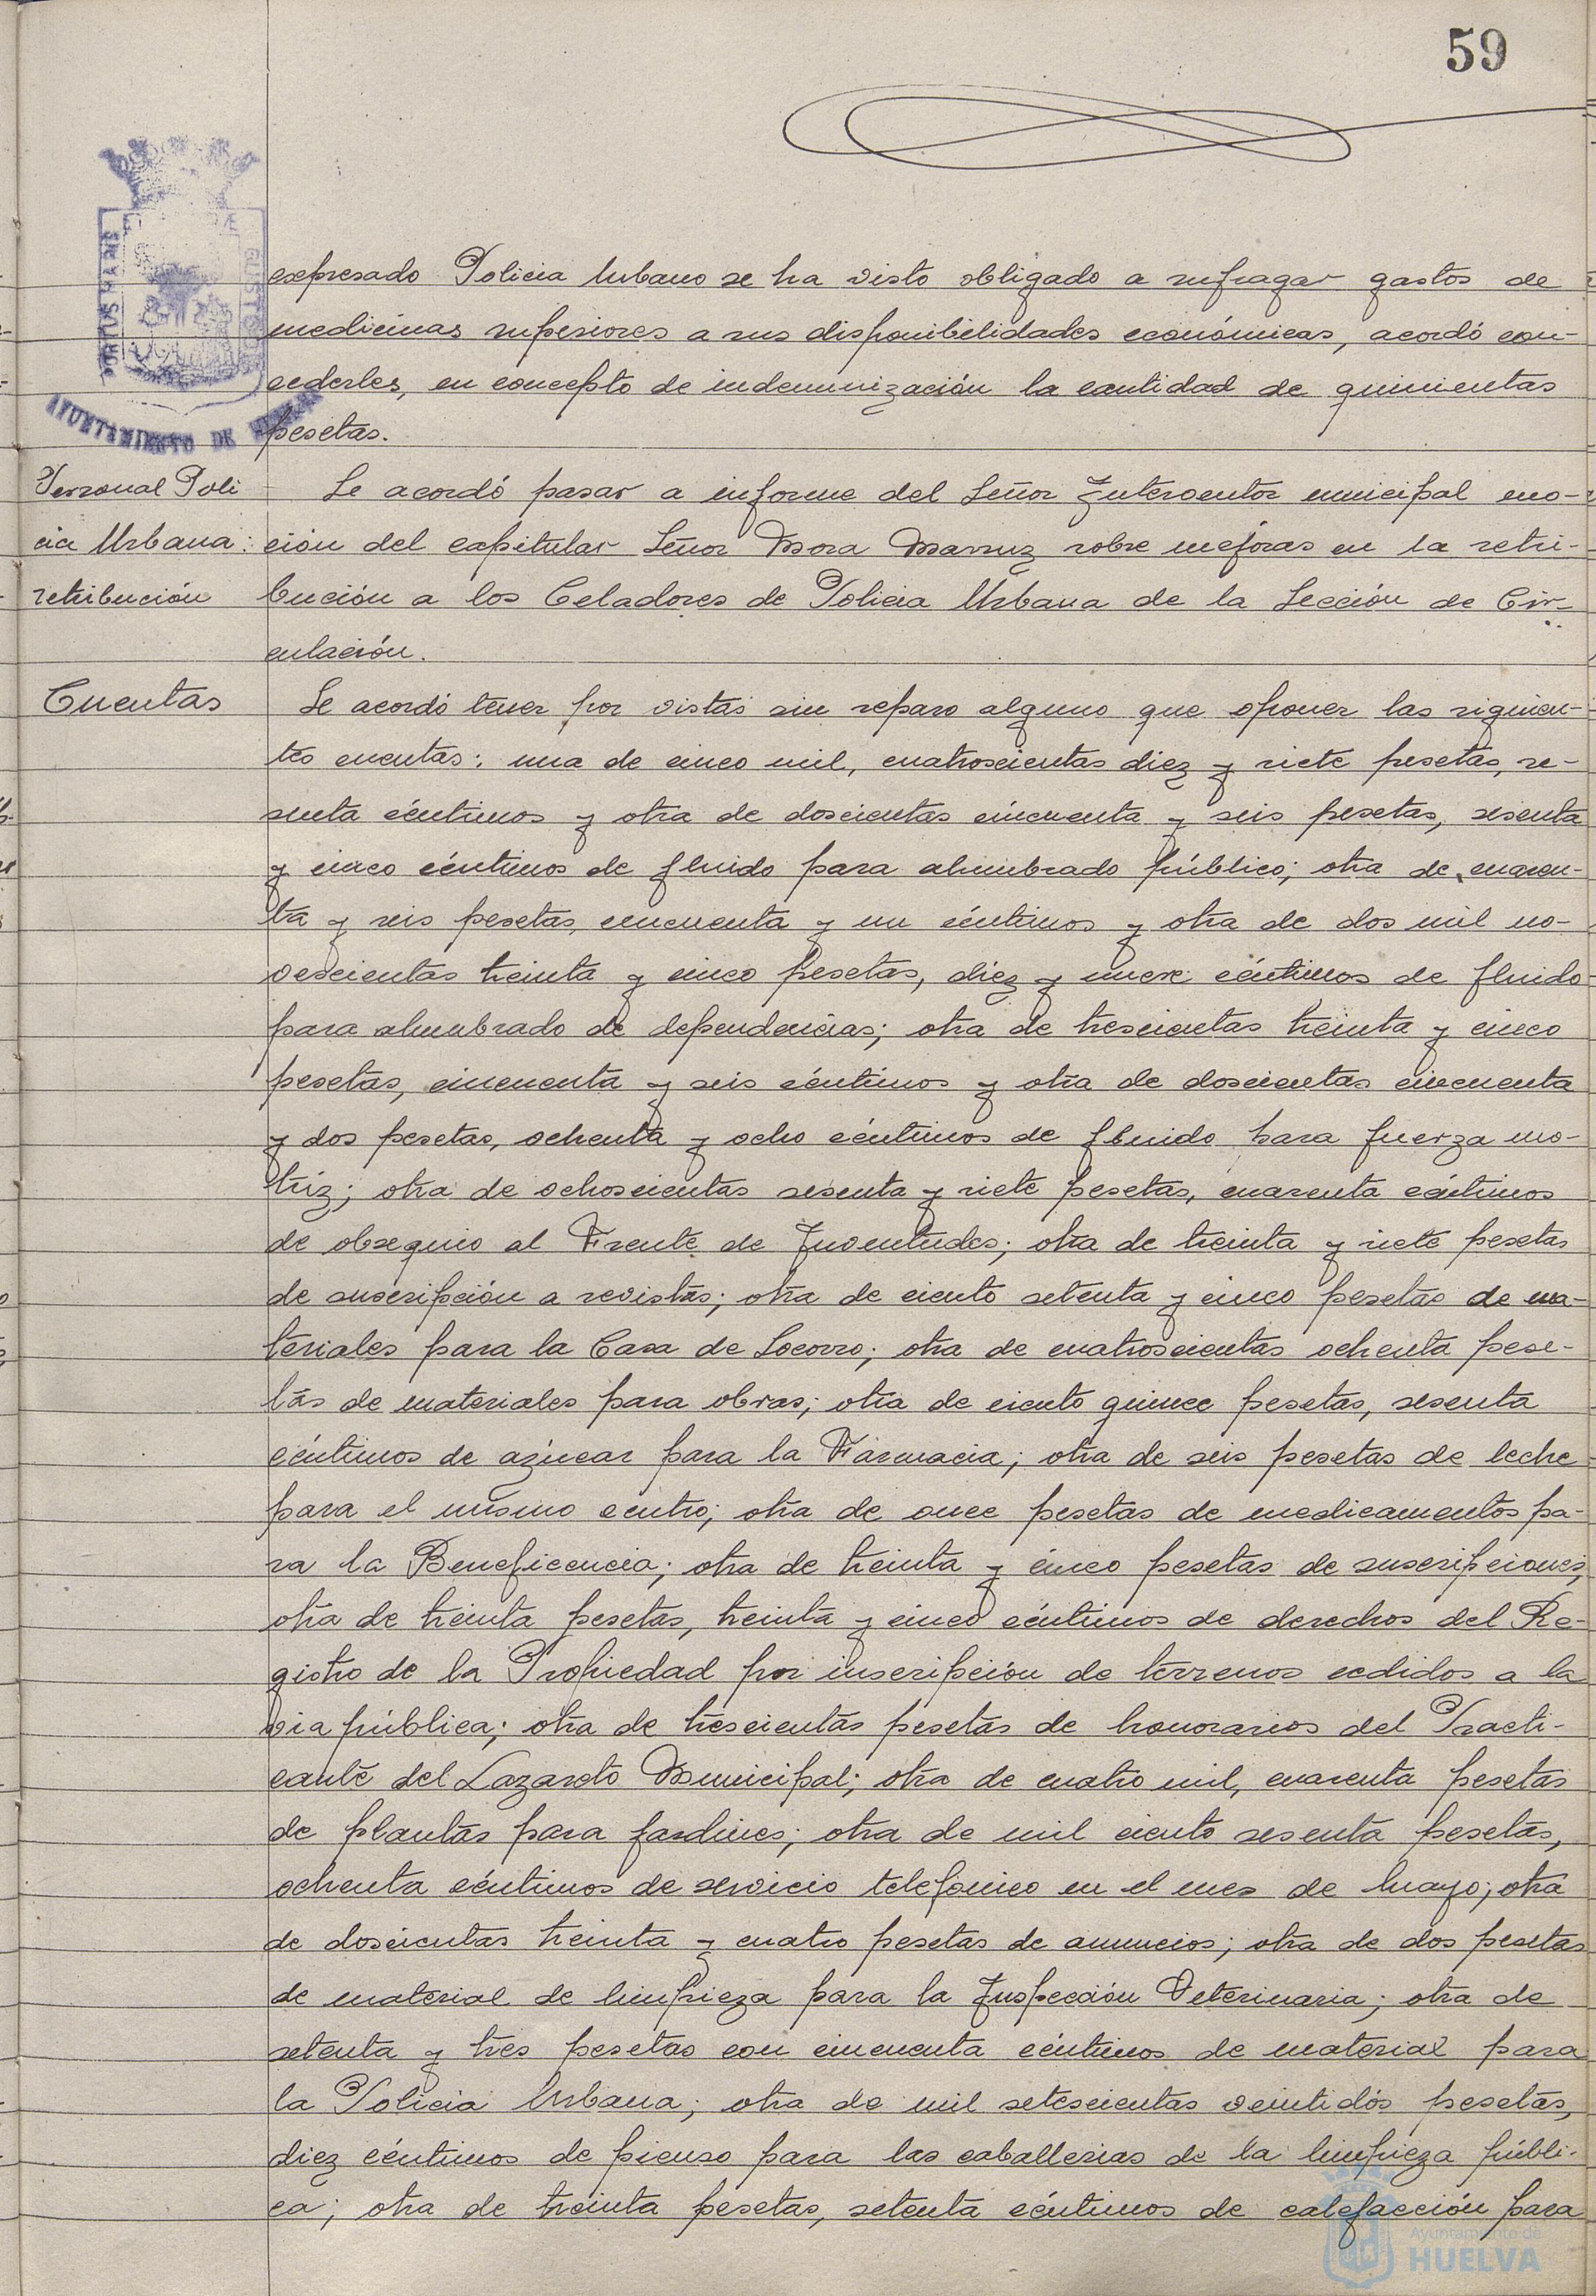 59
PORTUS MARIS ET TERRAE CUSTODIA
AYUNTAMIENTO DE HUELVA
expresado Policia Urbano se ha visto obligado a sufragar gastos de
medicinas superiores a sus disponibilidades económicas, acordó con-
cederles, en concepto de indemnización la cantidad de quinientas
pesetas.
Personal Poli
cia Urbana:
retribución
Se acordó pasar a informe del Señor Interventor municipal mo-
ción del capitular Señor Mora Marruz sobre mejoras en la retri-
bución a los Celadores de Policia Urbana de la Sección de Cir-
culación.
Cuentas
Se acordó tener por vistas sin reparo alguno que oponer las siguien-
tes cuentas: una de cinco mil, cuatroscientas diez y siete pesetas, se-
senta céntimos y otra de doscientas cincuenta y seis pesetas, sesenta
y cinco céntimos de fluido para alumbrado público; otra de cuaren-
ta y seis pesetas, cincuenta y un céntimos y otra de dos mil no-
vescientas treinta y cinco pesetas, diez y nueve céntimos de fluido
para alumbrado de dependencias; otra de trescientas treinta y cinco
pesetas, cincuenta y seis céntimos y otra de doscientas cincuenta
y dos pesetas, ochenta y ocho céntimos de fluido para fuerza mo-
triz; otra de ochoscientas sesenta y siete pesetas, cuarenta céntimos
de obsequio al Frente de Juventudes; otra de treinta y siete pesetas
de suscripción a revistas; otra de ciento setenta y cinco pesetas de ma-
teriales para la Casa de Socorro; otra de cuatroscientas ochenta pese-
tas de materiales para obras; otra de ciento quince pesetas, sesenta
céntimos de azúcar para la Farmacia; otra de seis pesetas de leche
para el mismo centro; otra de once pesetas de medicamentos pa-
ra la Beneficencia; otra de treinta y cinco pesetas de suscripciones,
otra de treinta pesetas, treinta y cinco céntimos de derechos del Re-
gistro de la Propiedad por inscripción de terrenos cedidos a la
via pública; otra de trescientas pesetas de honorarios del Practi-
cante del Lazareto Municipal; otra de cuatro mil, cuarenta pesetas
de plantas para jardines; otra de mil ciento sesenta pesetas,
ochenta céntimos de servicio telefónico en el mes de Mayo; otra
de doscientas treinta y cuatro pesetas de anuncios; otra de dos pesetas
de material de limpieza para la Inspección Veterinaria; otra de
setenta y tres pesetas con cincuenta céntimos de material para
la Policia Urbana; otra de mil setescientas veintidós pesetas,
diez céntimos de pienso para las caballerias de la limpieza públi-
ca; otra de treinta pesetas, setenta céntimos de calefacción para
Ayuntamiento de
HUELVA